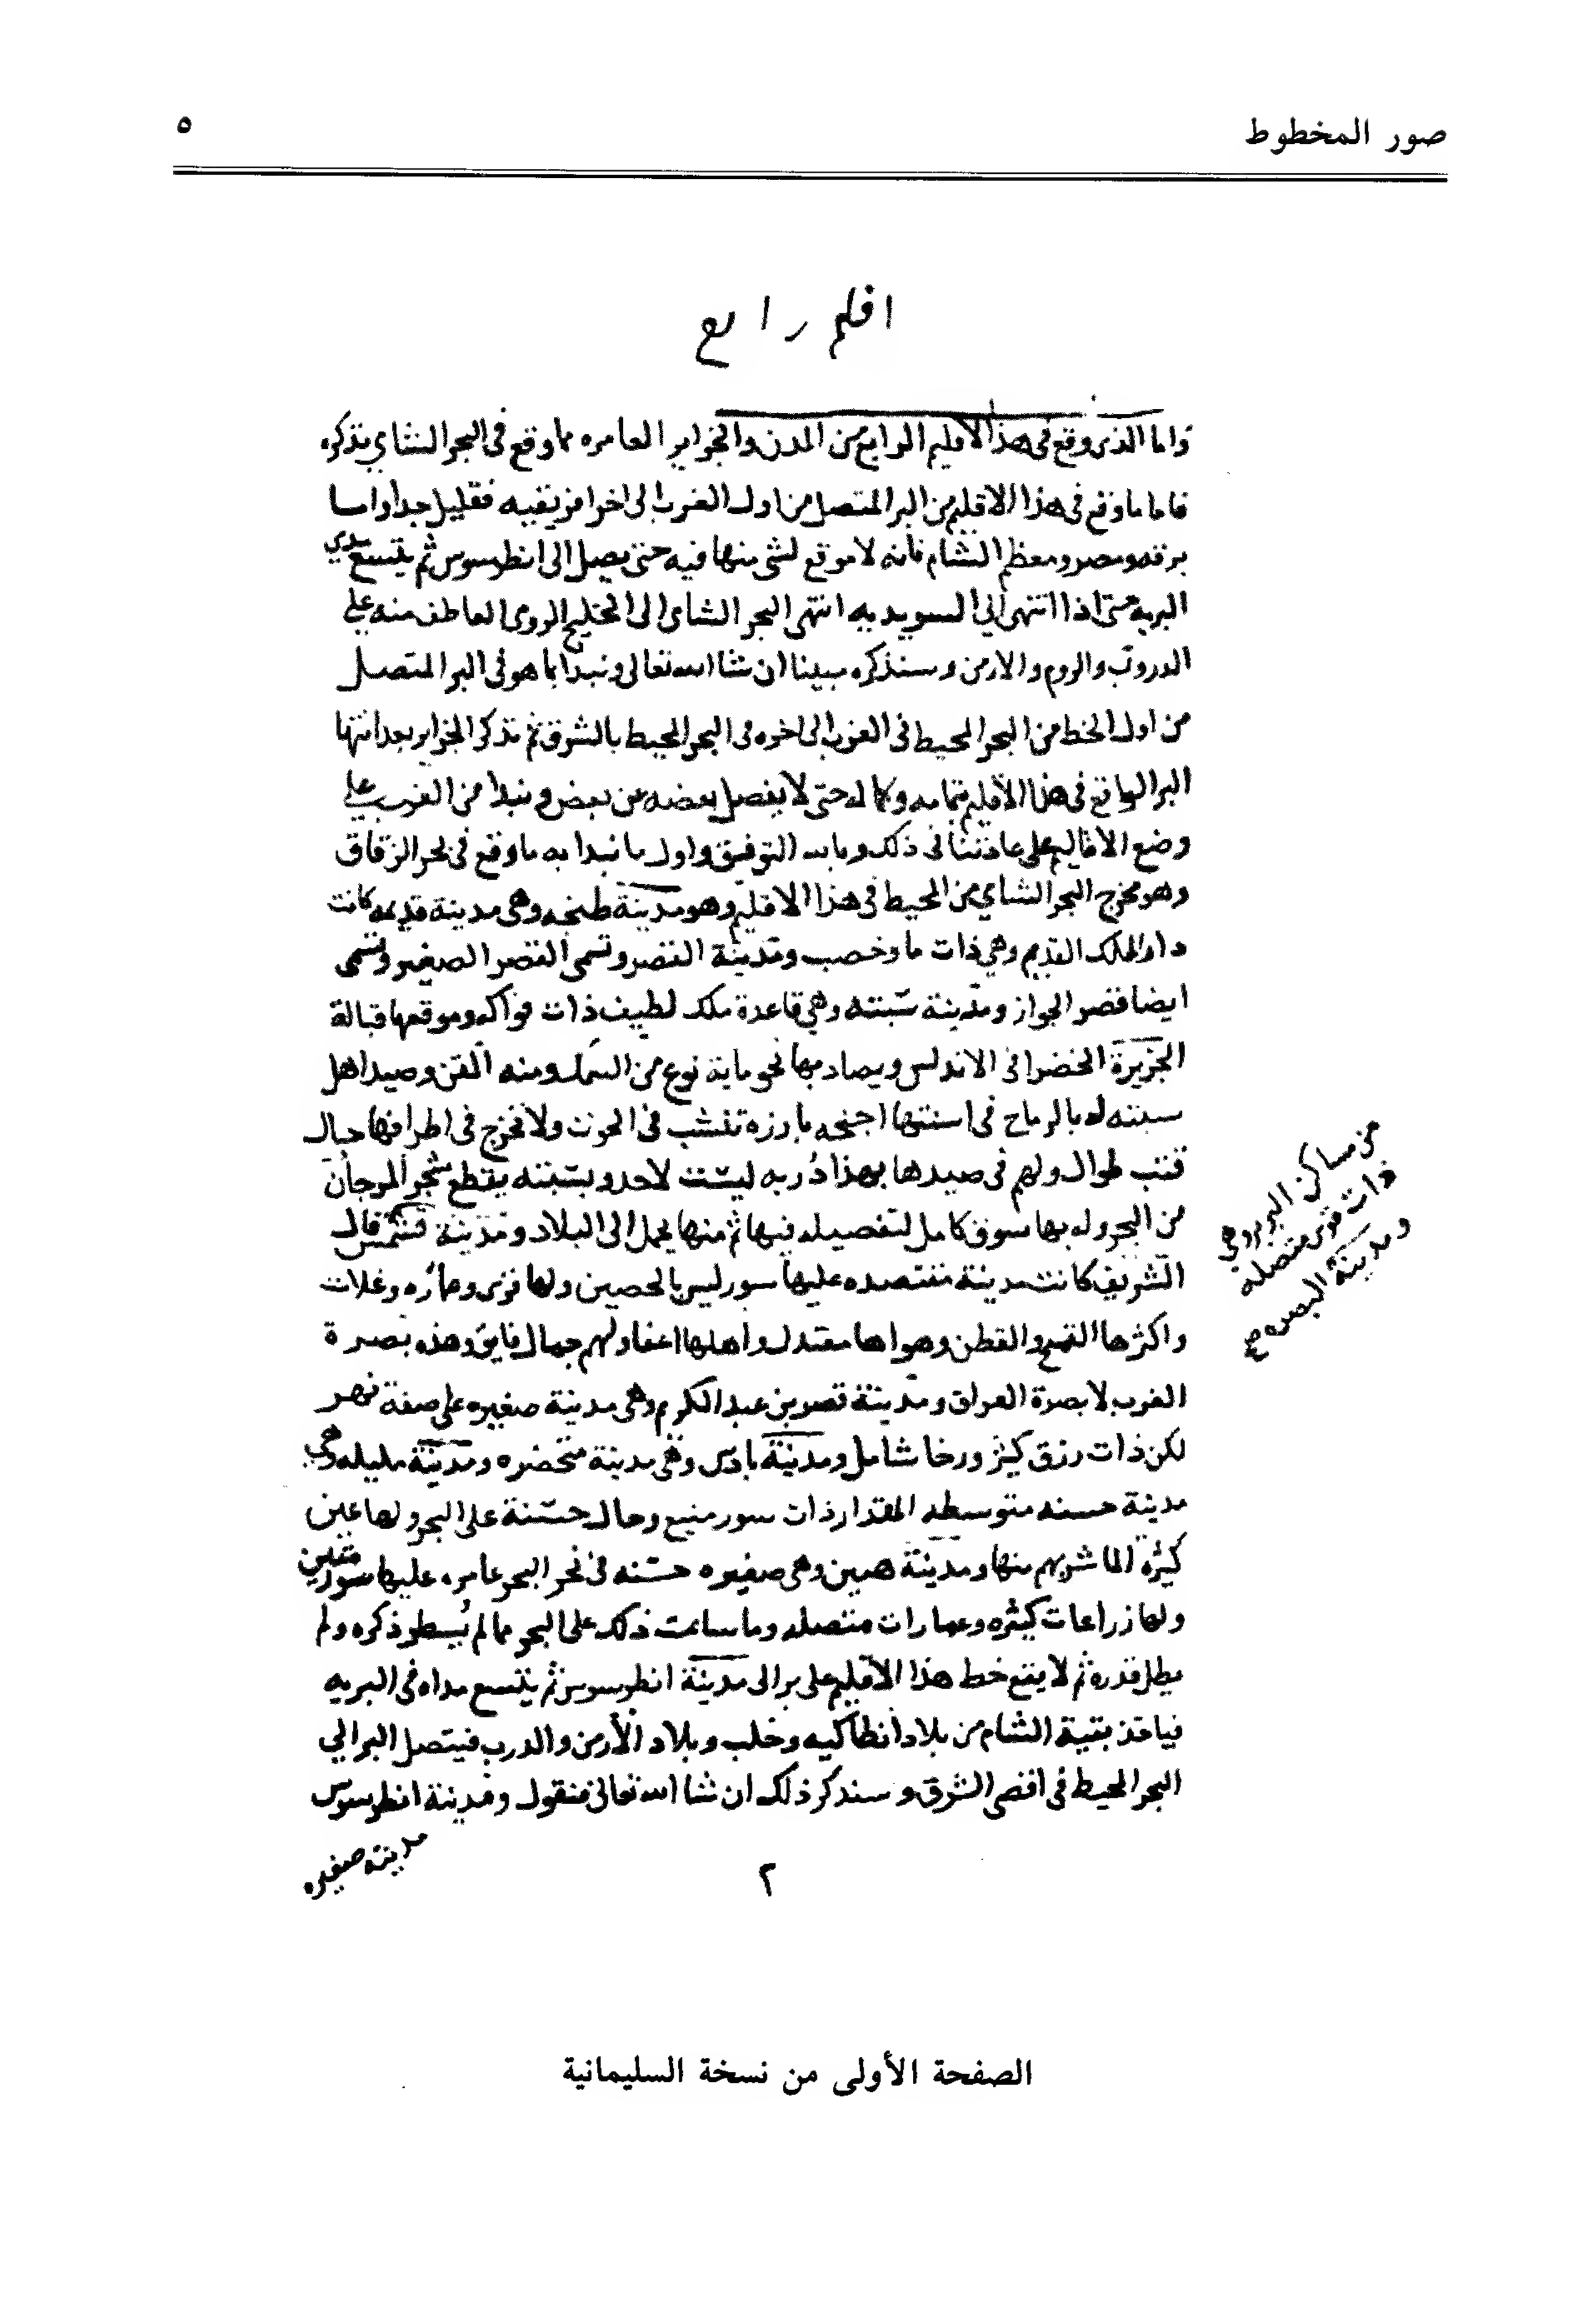 صور المخطوط
٥
اقلم رابع
واما الذى وقع فى هذا الاقليم الرابع من المدن والجزاير العامره مما وقع فى البحر الشاي نذكره
فاما ما وقع فى هذا الاقليم من البر المتصل من اول الغرب الى اخر افريقيه فقليل جدا واما
برقه ومصر ومعظم الشام فانه لا موقع لشى منها فيه حتى يصل الى انطرسوس ثم يتسع مدي
البريه حتى اذا انتهى الي السويديه انتهى البحر الشاى الى الخليج الرومى العاطف منه علي
الدروب والروم والارمن وسنذكره مبينا ان شا الله تعالى ونبدا بما هو فى البر المتصل
من اول الخط من البحر المحيط فى الغرب الى اخره فى البحر المحيط بالشرق ثم نذكر الجزاير بعد انتها
البر الواقع فى هذا الاقليم بتمامه وكماله حتى لا يفصل بعضه عن بعض ونبدا من الغرب علي
وضع الاقاليم على عادتنا فى ذلك وبالله التوفيق واول ما نبدا به ما وقع فى بحر الزقاق
وهو مخرج البحر الشاي من المحيط فى هذا الاقليم وهو مدينة طنجه وهى مدينة قديمه كانت
دار الملك القديم وهي ذات ما وخصب ومدينة القصر وتسمى القصر الصغير وتسمى
ايضا قصر الجواز ومدينة سبته وهي قاعدة ملك لطيف ذات فواكه وموقعها قبالة
الجزيرة الخضرا فى الاندلس ويصاد بها نحو ماية نوع من السمك ومنه التن وصيد اهل
سبته له بالرماح فى اسنتها اجنحه بارزه تنشب فى الحوت ولا تخرج فى اطرافها حبال
قنب طوال ولهم فى صيدها بهذا دربه ليست لاحد وبسبته يقطع شجر المرجان
من البحر وله بها سوق كامل لتفصيله فيها ثم منها يحمل الى البلاد ومدينة تشمس قال
الشريف كانت مدينة مقتصده عليها سور ليس بالحصين ولها قرى وعماره وغلات
واكثرها القمح والقطن وهواها معتدل واهلها اعفا ولهم جمال فايق وهذه بصرة
الغرب لا بصرة العراق ومدينة قصر بن عبد الكريم وهى مدينة صغيره على ضفة نهر
لكن ذات رزق كثير ورخا شامل ومدينة بادس وهى مدينة متحضره ومدينة مليله وهى
مدينة حسنه متوسطه المقدار ذات سور منيع وحال حسنة على البحر ولها عين
كثيرة الما شربهم منها ومدينة هنين وهى صغيره حسنه فى نحر البحر عامره عليها سور متقن
ولها زراعات كثيره وعمارات متصله وما سامت ذلك على البحر مما لم يسطر ذكره ولم
يطل قدره ثم لا يقع خط هذا الاقليم على بر الى مدينة انطرسوس ثم يتسع مداه فى البريه
فياخذ بقية الشام من بلاد أنطاكيه وحلب وبلاد الأرمن والدرب فيتصل البر الي
البحر المحيط فى اقصى الشرق وسنذكر ذلك ان شا الله تعالى فنقول ومدينة انطرسوس
مدينة صغيره
من مساكن البربر وهي
ذات قرى متصله
ومدينة البصره صح
٢
الصفحة الأولى من نسخة السليمانية